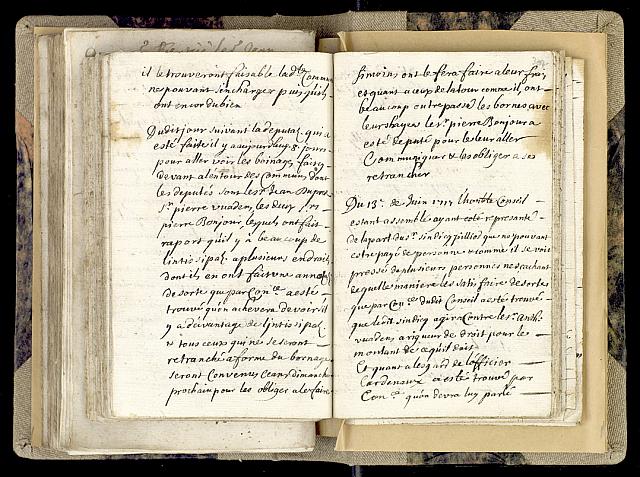 il le trouveront faisable lad.te Comm
ne pouvant sen charger puis quil
ont encor du bien
Dudit jour suivant la deputat. qui a
esté faitte il y a aujourdhuy 8 jours
pour aller voir les boinages faisez
devant alentour des Communs dont
les deputés sont les Sr. Jean Dupres
Sr. pierre vuaden, les deux Srs
pierre Bonjour, lesquels ont fait
raport quil y à beaucoup de
lintissipal. a plusieurs endroits
dont ils en ont fait vne
de sorte que par Con.le a esté
trouvé quon achevera de voir il
y a devantage de lintissipal
& tous ceux qui ne se seront
retranché a forme du bornage
seront Convenus Ceans dimanche
prochain pour les obliger a le faire
simoins ont le fera faire a leur frais
et quant a ceup de latour comme il, ont
beaucoup outre passé les bornes, avec
leurs hayes le Sr. pierre Bonjour a
esté deputé pour le leur aller
Communiquer & les obliger a se
retrancher
Du 13e. de Juin 1717 l'honble Conseil
estant assemblé ayant esté representé
de la part du Sr. sindicq pilliod que ne pouvant
estre payé de personne & comme il se voit
pressé de plusieurs personnes ne sachant
de quelle maniere les satisfaire de sorte
que par Con.le dudit Conseil a esté trouvé
que ledit sindicq agira Contre le Sr. Anth.
vuadens a rigueur de droit pour le
montant de ce quil doit
Et quant a les gard de lofficier
Cardenaux a esté trouvé par
Con.le quon devra luy parlé